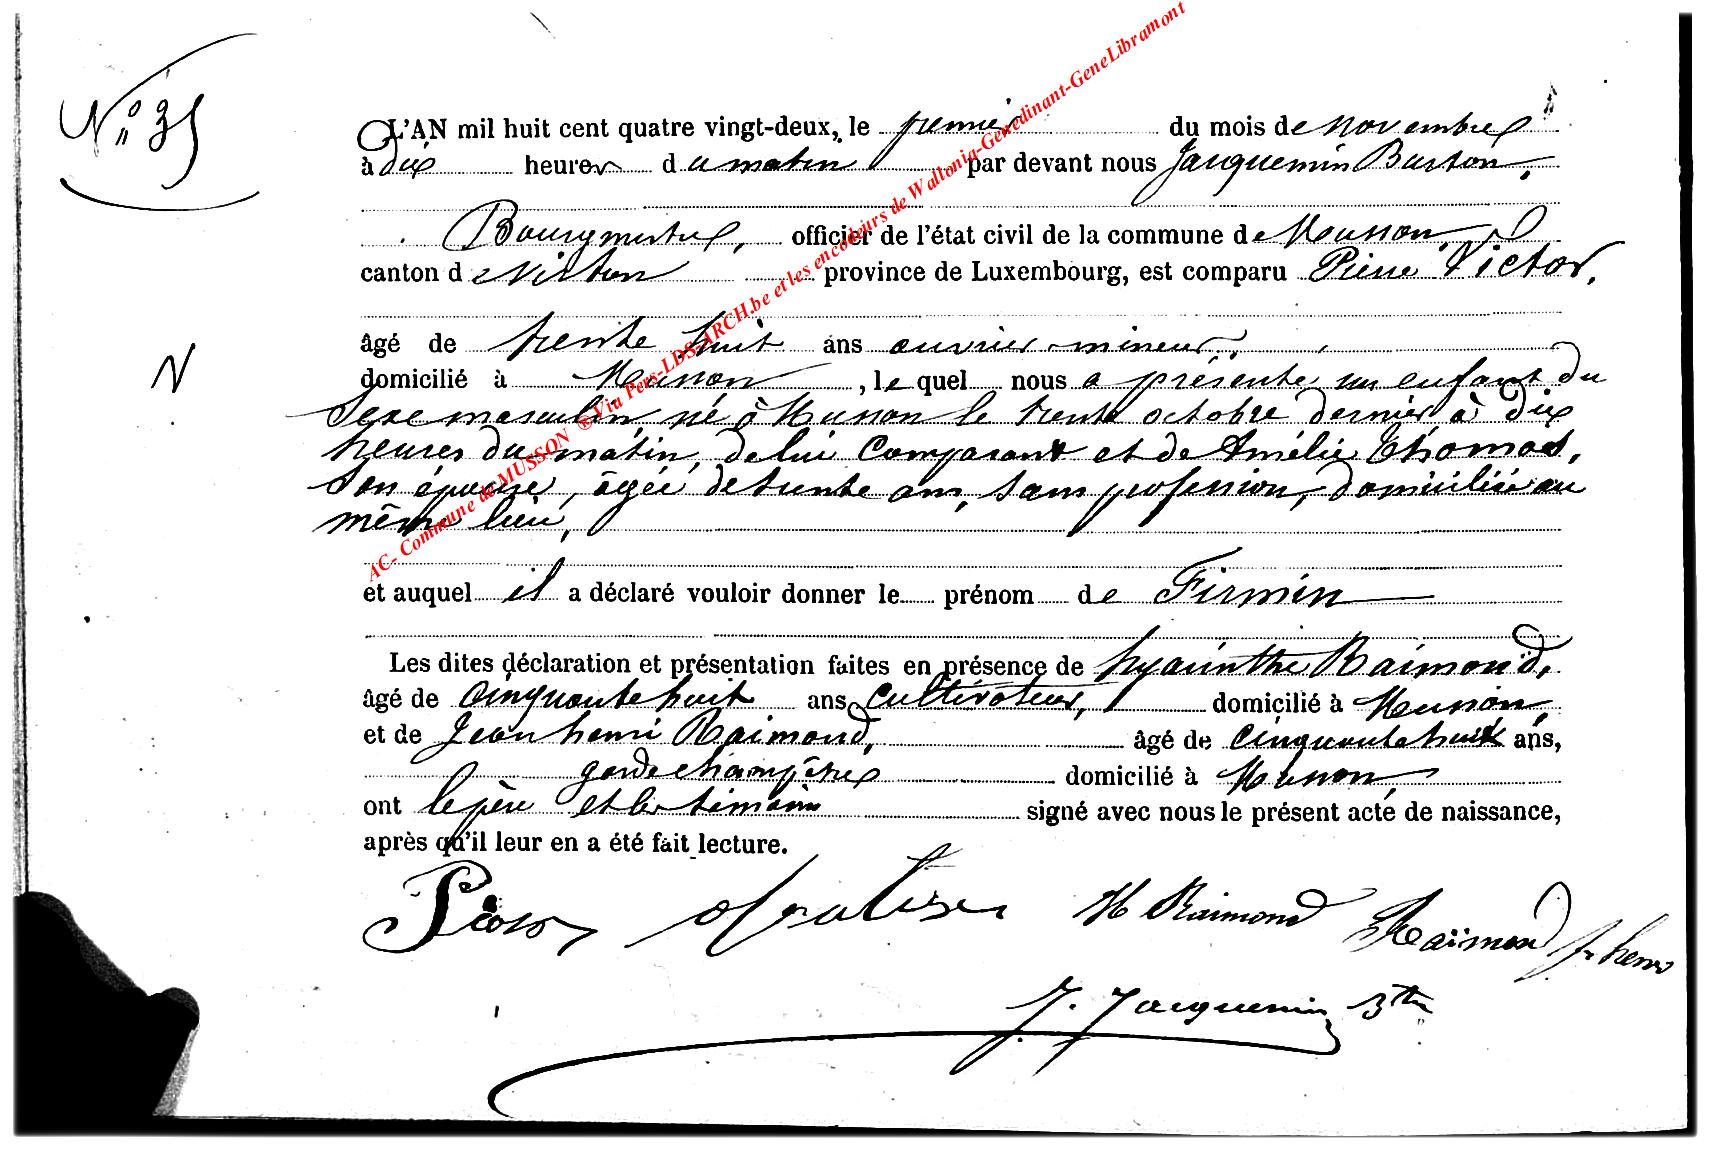 N° 35
L'AN mil huit cent quatre vingt-deux, le premier du mois de Novembre
à dix heures du matin par devant nous Jacquemin Baston,
Bourgmestre, officier de l'état civil de la commune de Musson,
canton de Virton province de Luxembourg, est comparu Pierre Victor,
âgé de trente huit ans ouvrier mineur,
domicilié à Musson, lequel nous a présenté un enfant du
sexe masculin, né à Musson le trente octobre dernier à dix
heures du matin, de lui Comparant et de Amélie Thomas,
son épouse, âgée de trente ans, sans profession, domiciliée au
même lieu,
et auquel il a déclaré vouloir donner le prénom de Firmin
Les dites déclaration et présentation faites en présence de hyacinthe Raimond,
âgé de cinquante huit ans cultivateur, domicilié à Musson,
et de Jean henri Raimond, âgé de cinquante huit ans,
garde champêtre domicilié à Musson,
ont le père et les témoins signé avec nous le présent acte de naissance,
après qu'il leur en a été fait lecture.
H Raimond
Raimond J. henri
J. Jacquemin Btn
N
AC- Commune de MUSSON ® Via Pers-LDS-ARCH.be et les encodeurs de Waltonia-Genedinant-GeneLibramont